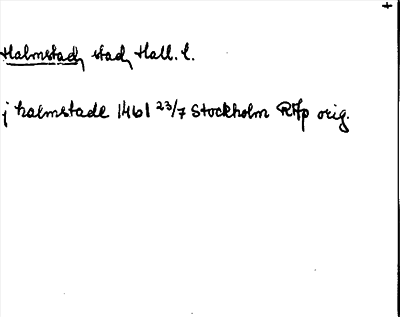 Halmstad, stad, Hall. l.
j halmstade 1461 23/7 Stockholm RAp orig.